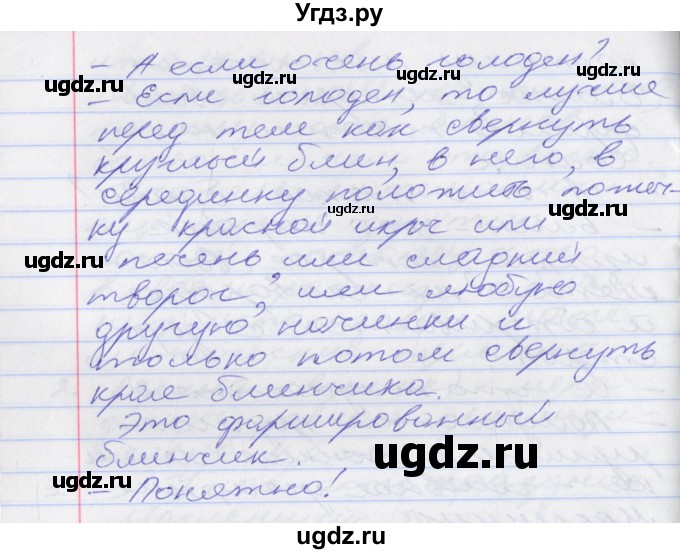 Угдз.ру
– А если очень голоден?
– Если голоден, то лучше
перед тем как свернуть
круглый блин, в него, в
серединку положить ложеч-
ку красной икры или
печень или сладкий
творог, или любую
другую начинки и
только потом свернуть
края блинчика.
Это фаршированный
блинчик.
– Понятно!
ugdz.ru
ugdz.ru
ugdz.ru
ugdz.ru
ugdz.ru
ugdz.ru
ugdz.ru
ugdz.ru
ugdz.ru
ugdz.ru
ugdz.ru
ugdz.ru
ugdz.ru